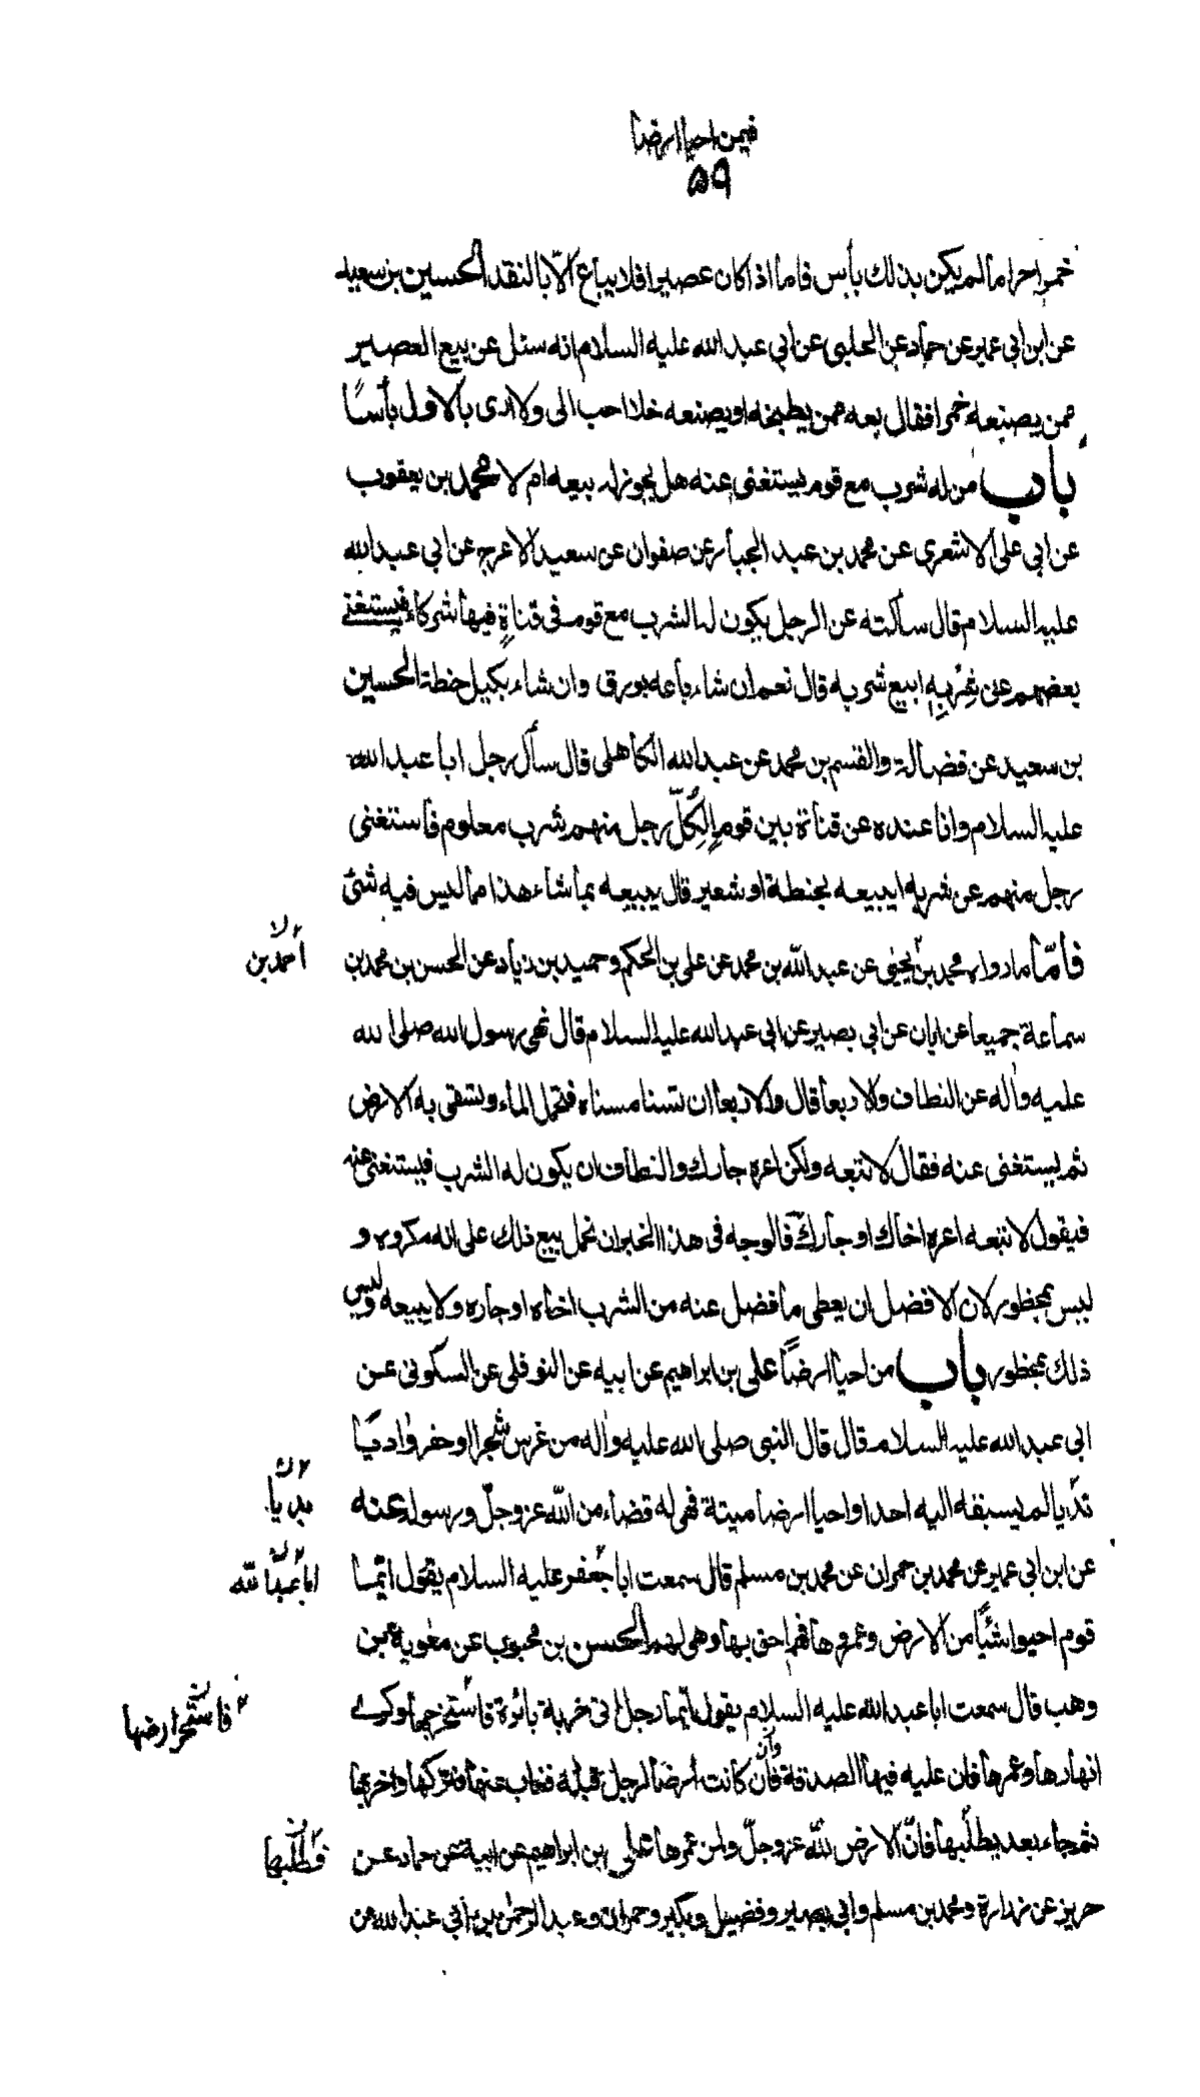 فيمن احيا ارضا
٥٩
خمرا حراما لم يكن بذلك بأس فاما اذا كان عصيرا فلا يباع الّا بالنقد الحسين بن سعيد
عن ابن ابى عمير عن حماد عن الحلبى عن ابى عبد الله عليه السلام انه سئل عن بيع العصير
ممن يصنعه خمرا فقال بعه ممن يطبخه او يصنعه خلا احب الى ولا ارى بالاول بأسًا
باب من له شرب مع قوم يستغنى عنه هل يجوز له بيعه ام لا محمد بن يعقوب
عن ابى على الاشعرى عن محمد بن عبد الجبار عن صفوان عن سعيد الاعرج عن ابى عبد الله
عليه السلام قال سألته عن الرجل يكون له الشرب مع قوم فى قناةٍ فيها شركاء فيستغنى
بعضهم عن شِرْبِهِ ابيع شربه قال نعم ان شاء باعه بورق وان شاء بكيل حنطة الحسين
بن سعيد عن فضالة والقسم بن محمد عن عبد الله الكاهلى قال سأل رجل ابا عبد الله
عليه السلام وانا عنده عن قناة بين قومٍ لِكُلّ رجل منهم شرب معلوم فاستغنى
رجل منهم عن شربه ايبيعه بحنطة او شعير قال يبيعه بما شاء هذا مما ليس فيه شئ
فأمّا ما رواه محمد بن يحيى عن عبد الله بن محمد عن على بن الحكم وحميد بن زياد عن الحسن بن محمد بن
أحمد بن
سماعة جميعا عن ابان عن ابى بصير عن ابى عبد الله عليه السلام قال نهى رسول الله صلى الله
عليه وآله عن النطاف والاربعا قال والاربعا ان تسنا مسناه فتحمل الماء وتسقى به الارض
ثم يستغنى عنه فقال لا تبعه ولكن اعره جارك والنطاف ان يكون له الشرب فيستغنى عنه
فيقول لا تبعه اعره اخاك او جارك فالوجه فى هذا الخبر ان نحمل بيع ذلك على انه مكروه و
ليس بمحظور لان الافضل ان يعطى ما فضل عنه من الشرب اخاه او جاره ولا يبيعه وليس
ذلك بمحظور باب من احيا ارضًا على بن ابراهيم عن ابيه عن النوفلى عن السكونى عن
ابى عبد الله عليه السلام قال قال النبى صلى الله عليه وآله من غرس شجرا او حفر واديًا
بديا لم يسبقه اليه احد او احيا ارضا ميتة فهى له قضاء من الله عز وجلّ ورسوله عنه
بديًا
عن ابن ابى عمير عن محمد بن حمران عن محمد بن مسلم قال سمعت ابا جعفر عليه السلام يقول ايّما
ابا عبد الله
قوم احيوا شيئًا من الارض وعمروها فهم احق بها وهى لهم الحسن بن محبوب عن معوية بن
وهب قال سمعت ابا عبد الله عليه السلام يقول ايّما رجل اتى خربة بائرة فاستخرجها وكرى
انهارها وعمرها فان عليه فيها الصدقة وان كانت أرض الرجل قبله فغاب عنها فتركها واخربها
ثم جاء بعد يطلبها فانّ الارض لله عز وجلّ ولمن عمرها على بن ابراهيم عن ابيه عن حماد عن
فطلبها
حريز عن زرارة ومحمد بن مسلم وابى بصير وفضيل وبكير وحمران وعبد الرحمن بن ابى عبد الله عن